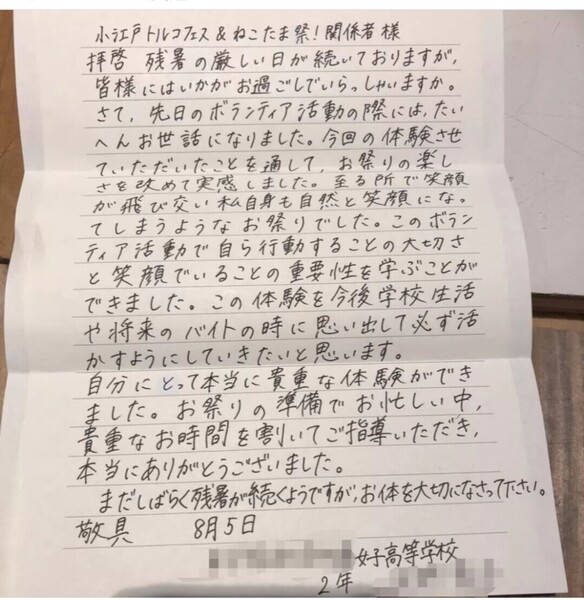 小江戸トルコフェス＆ねこたま祭！関係者様
拝啓 残暑の厳しい日が続いておりますが，
皆様にはいかがお過ごしでいらっしゃいますか。
さて，先日のボランティア活動の際には，たい
へんお世話になりました。今回の体験させ
ていただいたことを通して，お祭りの楽し
さを改めて実感しました。至る所で笑顔
が飛び交い私自身も自然と笑顔にな。
てしまうようなお祭りでした。このボラン
ティア活動で自ら行動することの大切さ
と笑顔でいることの重要性を学ぶことが
できました。この体験を今後学校生活
や将来のバイトの時に思い出して必ず活
かすようにしていきたいと思います。
自分にとって本当に貴重な体験ができ
ました。お祭りの準備でお忙しい中，
貴重なお時間を割いてご指導いただき，
本当にありがとうございました。
まだしばらく残暑が続くようですが，お体を大切になさって下さい。
敬具 8月5日
女子高等学校
2年